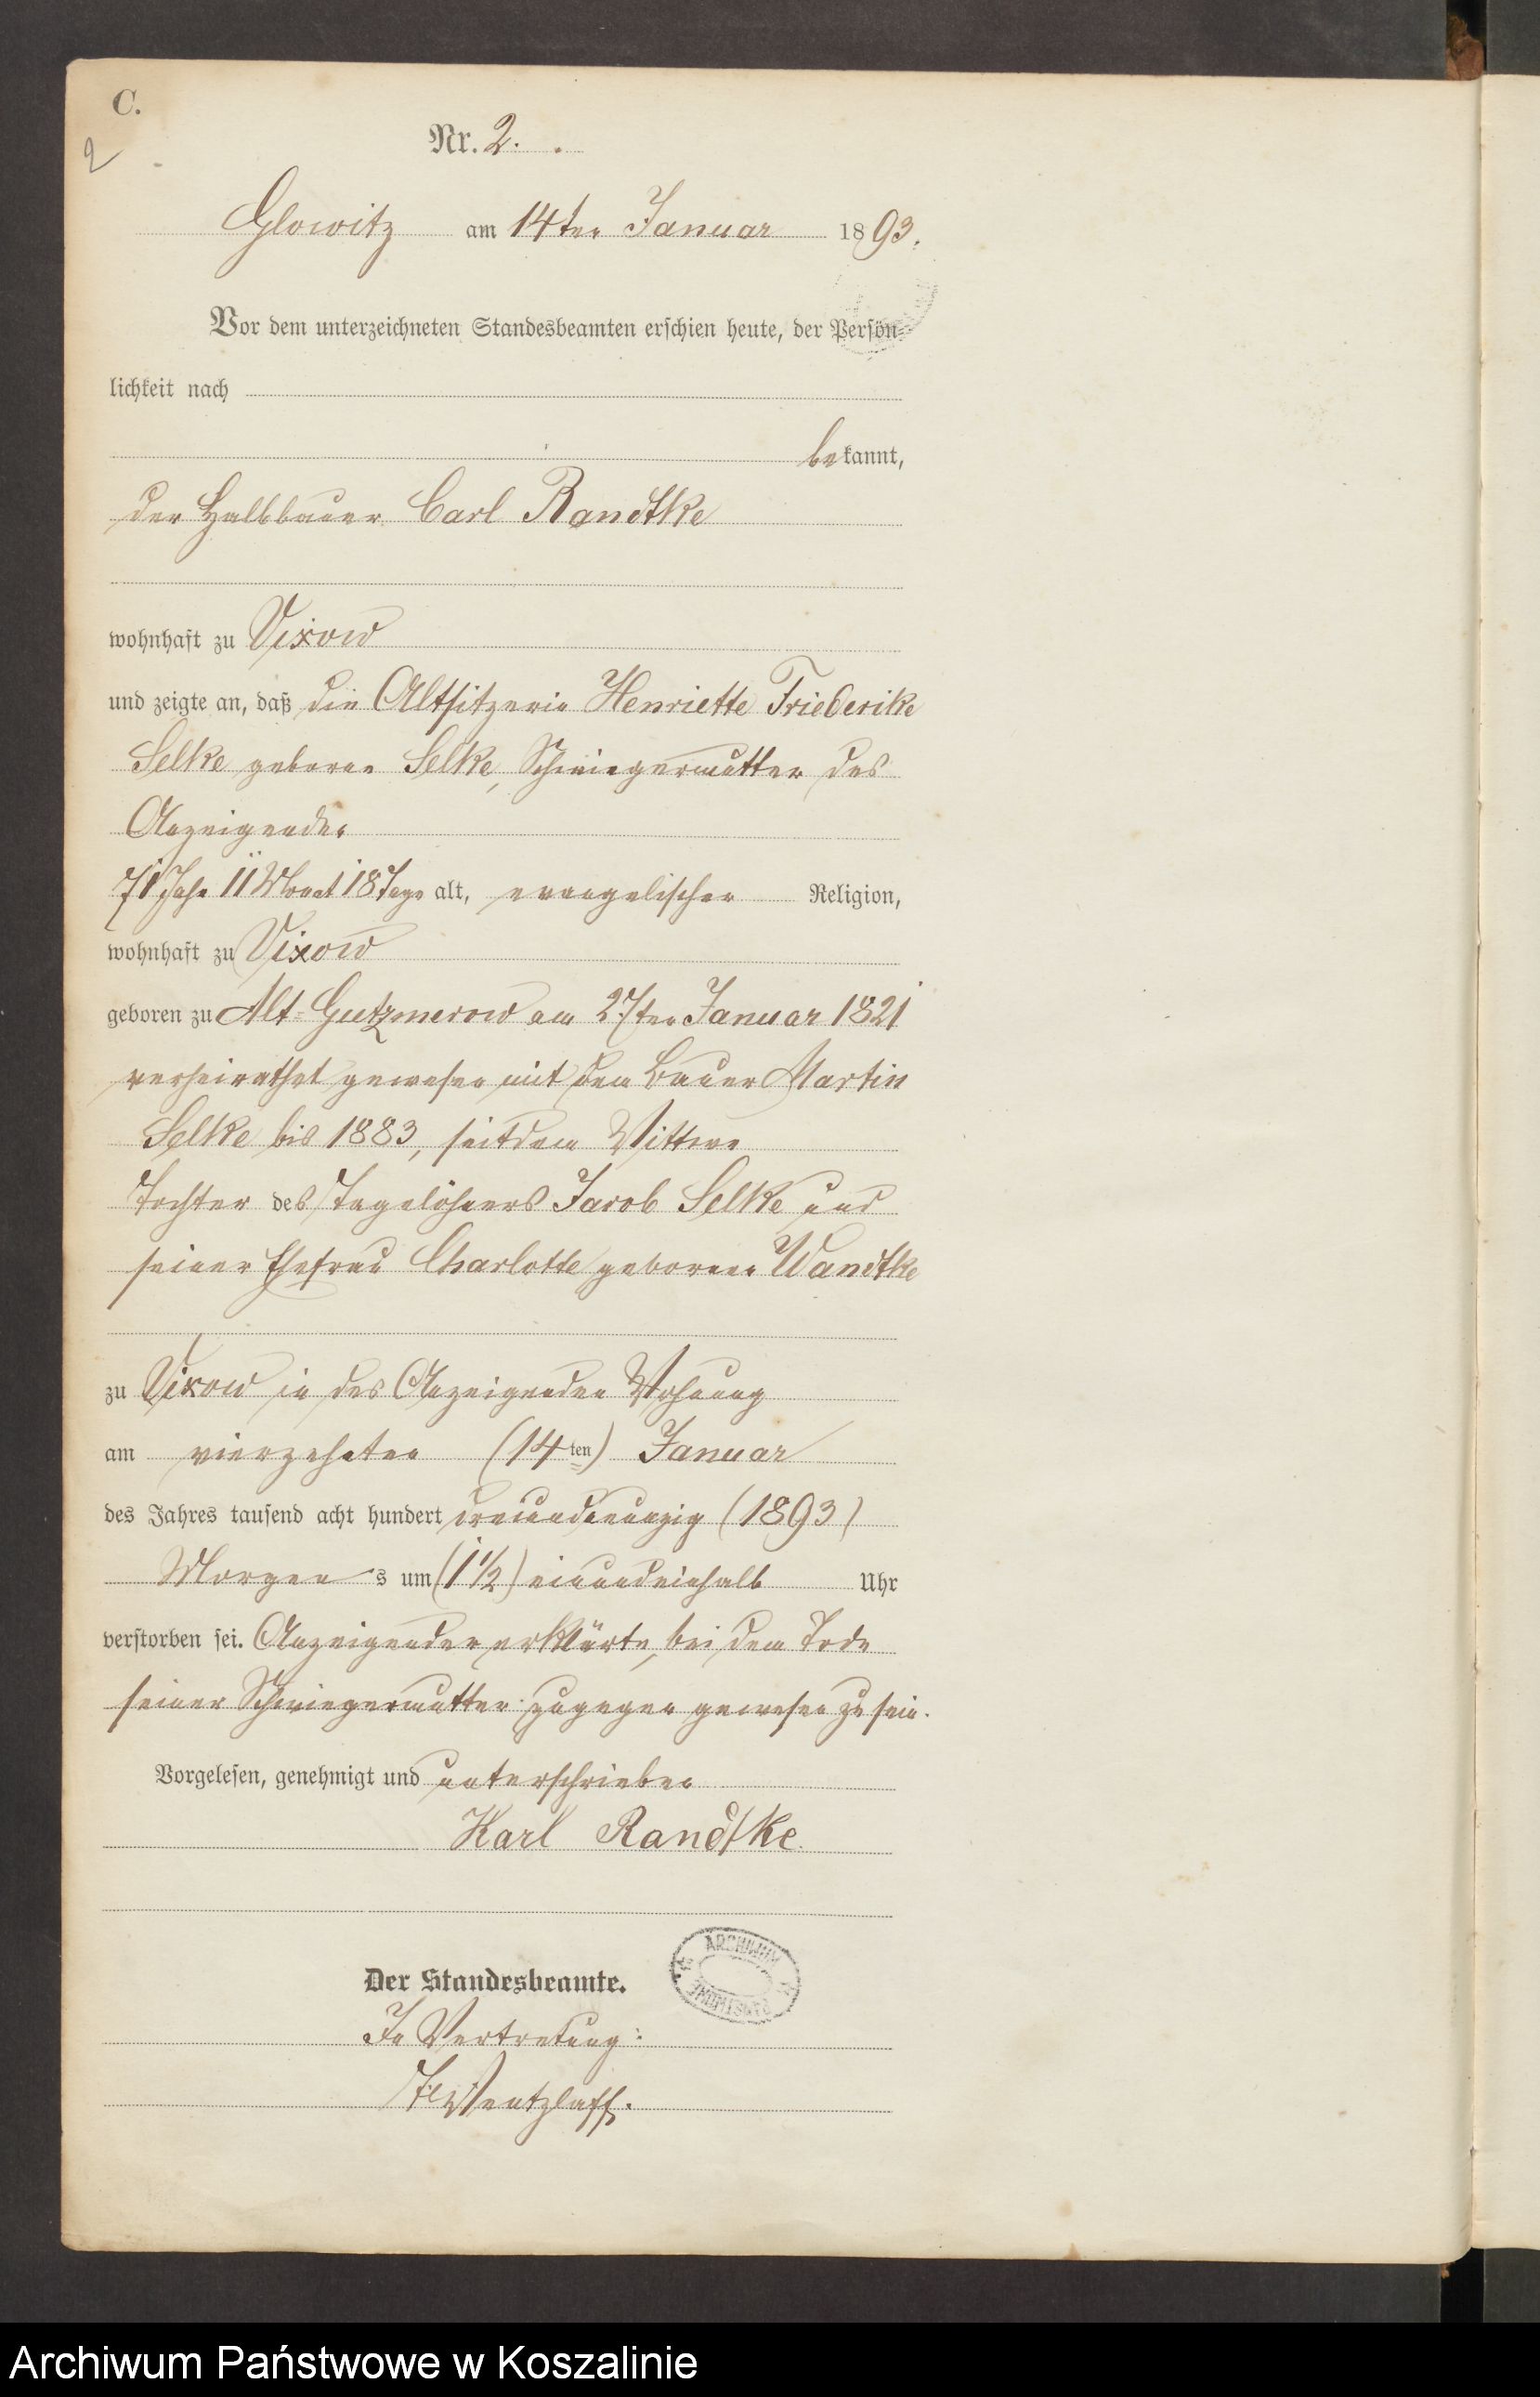 C.
2
Nr. 2.
Glowitz am 14ten Januar 1893.
Vor dem unterzeichneten Standesbeamten erschien heute, der Persön-
lichkeit nach
bekannt,
der Halbbauer Carl Randtke
wohnhaft zu Vixow
und zeigte an, daß die Altsitzerin Henriette Friederike
Selke geborne Selke, Schwiegermutter des
Anzeigenden
71 Jahr 11 Monat 18 Tage alt, evangelischer Religion,
wohnhaft zu Vixow
geboren zu Alt-Gutzmerow am 27ten Januar 1821
verheirathet gewesen mit dem Bauer Martin
Selke bis 1883, seitdem Wittwe
Tochter des Tagelöhners Jacob Selke und
seiner Ehefrau Charlotte geborenen Wandtke
zu Vixow in des Anzeigenden Wohnung
am vierzehnten (14ten) Januar
des Jahres tausend acht hundert dreiundneunzig (1893)
Morgens um (1 1/2) einundeinhalb Uhr
verstorben sei. Anzeigender erklärte, bei dem Tode
seiner Schwiegermutter zugegen gewesen zu sein.
Vorgelesen, genehmigt und unterschrieben
Karl Randtke
Der Standesbeamte.
ARCHIWUM
In Vertretung:
Wentzlaff.
Archiwum Państwowe w Koszalinie